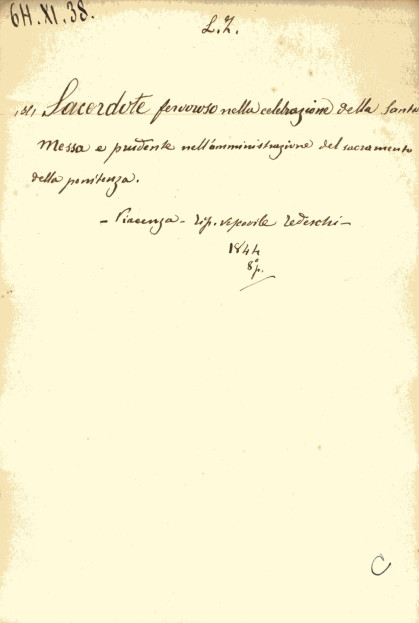 6H.XI.38.
L.Z.
Sacerdote fervoroso nella celebrazione della Santa
Messa e prudente nell'amministrazione del sacramento
della penitenza.
- Piacenza - tip. vescovile Tedeschi -
1844
8º p.
C